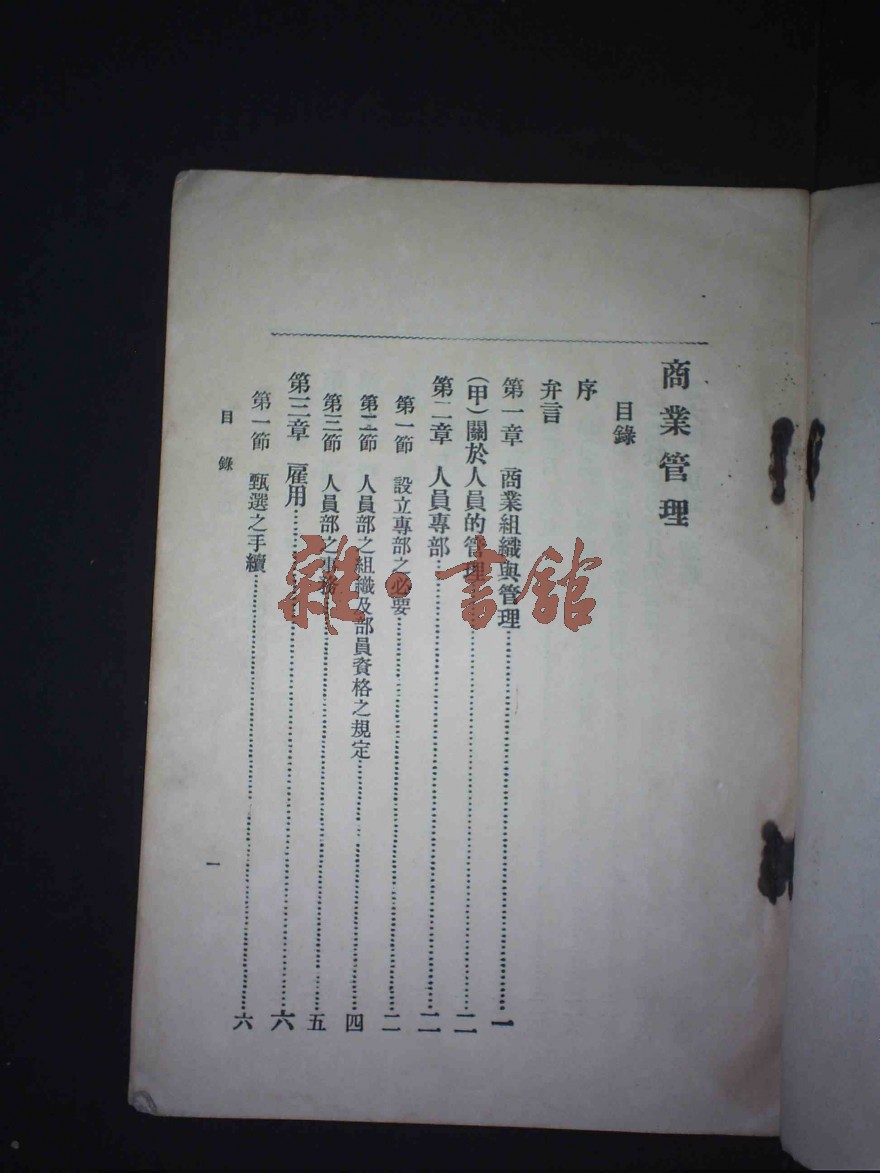 商業管理
目錄
序
弁言
第一章 商業組織與管理……一
(甲)關於人員的管理……二
第二章 人員專部……二
第一節 設立專部之必要……二
第二節 人員部之組織及部員資格之規定……四
第三節 人員部之事務……五
第三章 雇用……六
第一節 甄選之手續……六
目錄
一
雜·書館